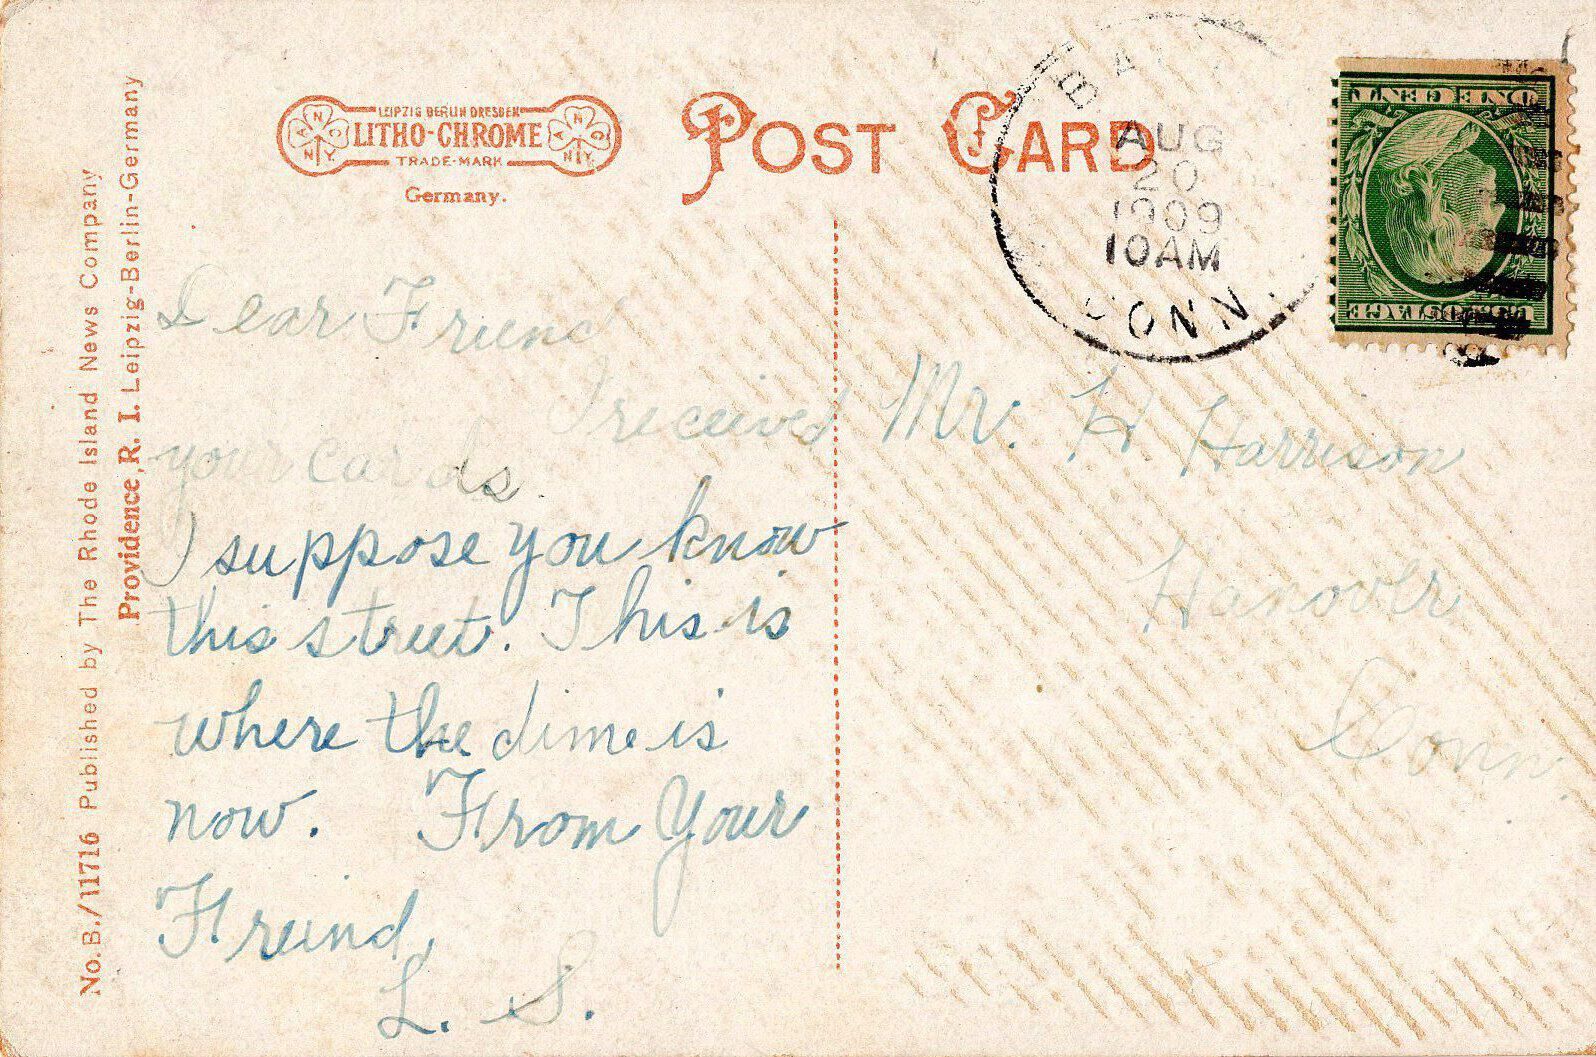 LEIPZIG BERLIN DRESDEN
LITHO-CHROME
TRADE-MARK
Germany.
POST CARD
AUG
20
1909
10AM
CONN.
ONE CENT
POSTAGE
No. B./11716 Published by The Rhode Island News Company
Providence, R. I. Leipzig-Berlin-Germany
Dear Friend
I received
your cards.
I suppose you know
this street. This is
where the dime is
now. From Your
Freind,
L. S.
Mr. H Harrison
Hanover
Conn.